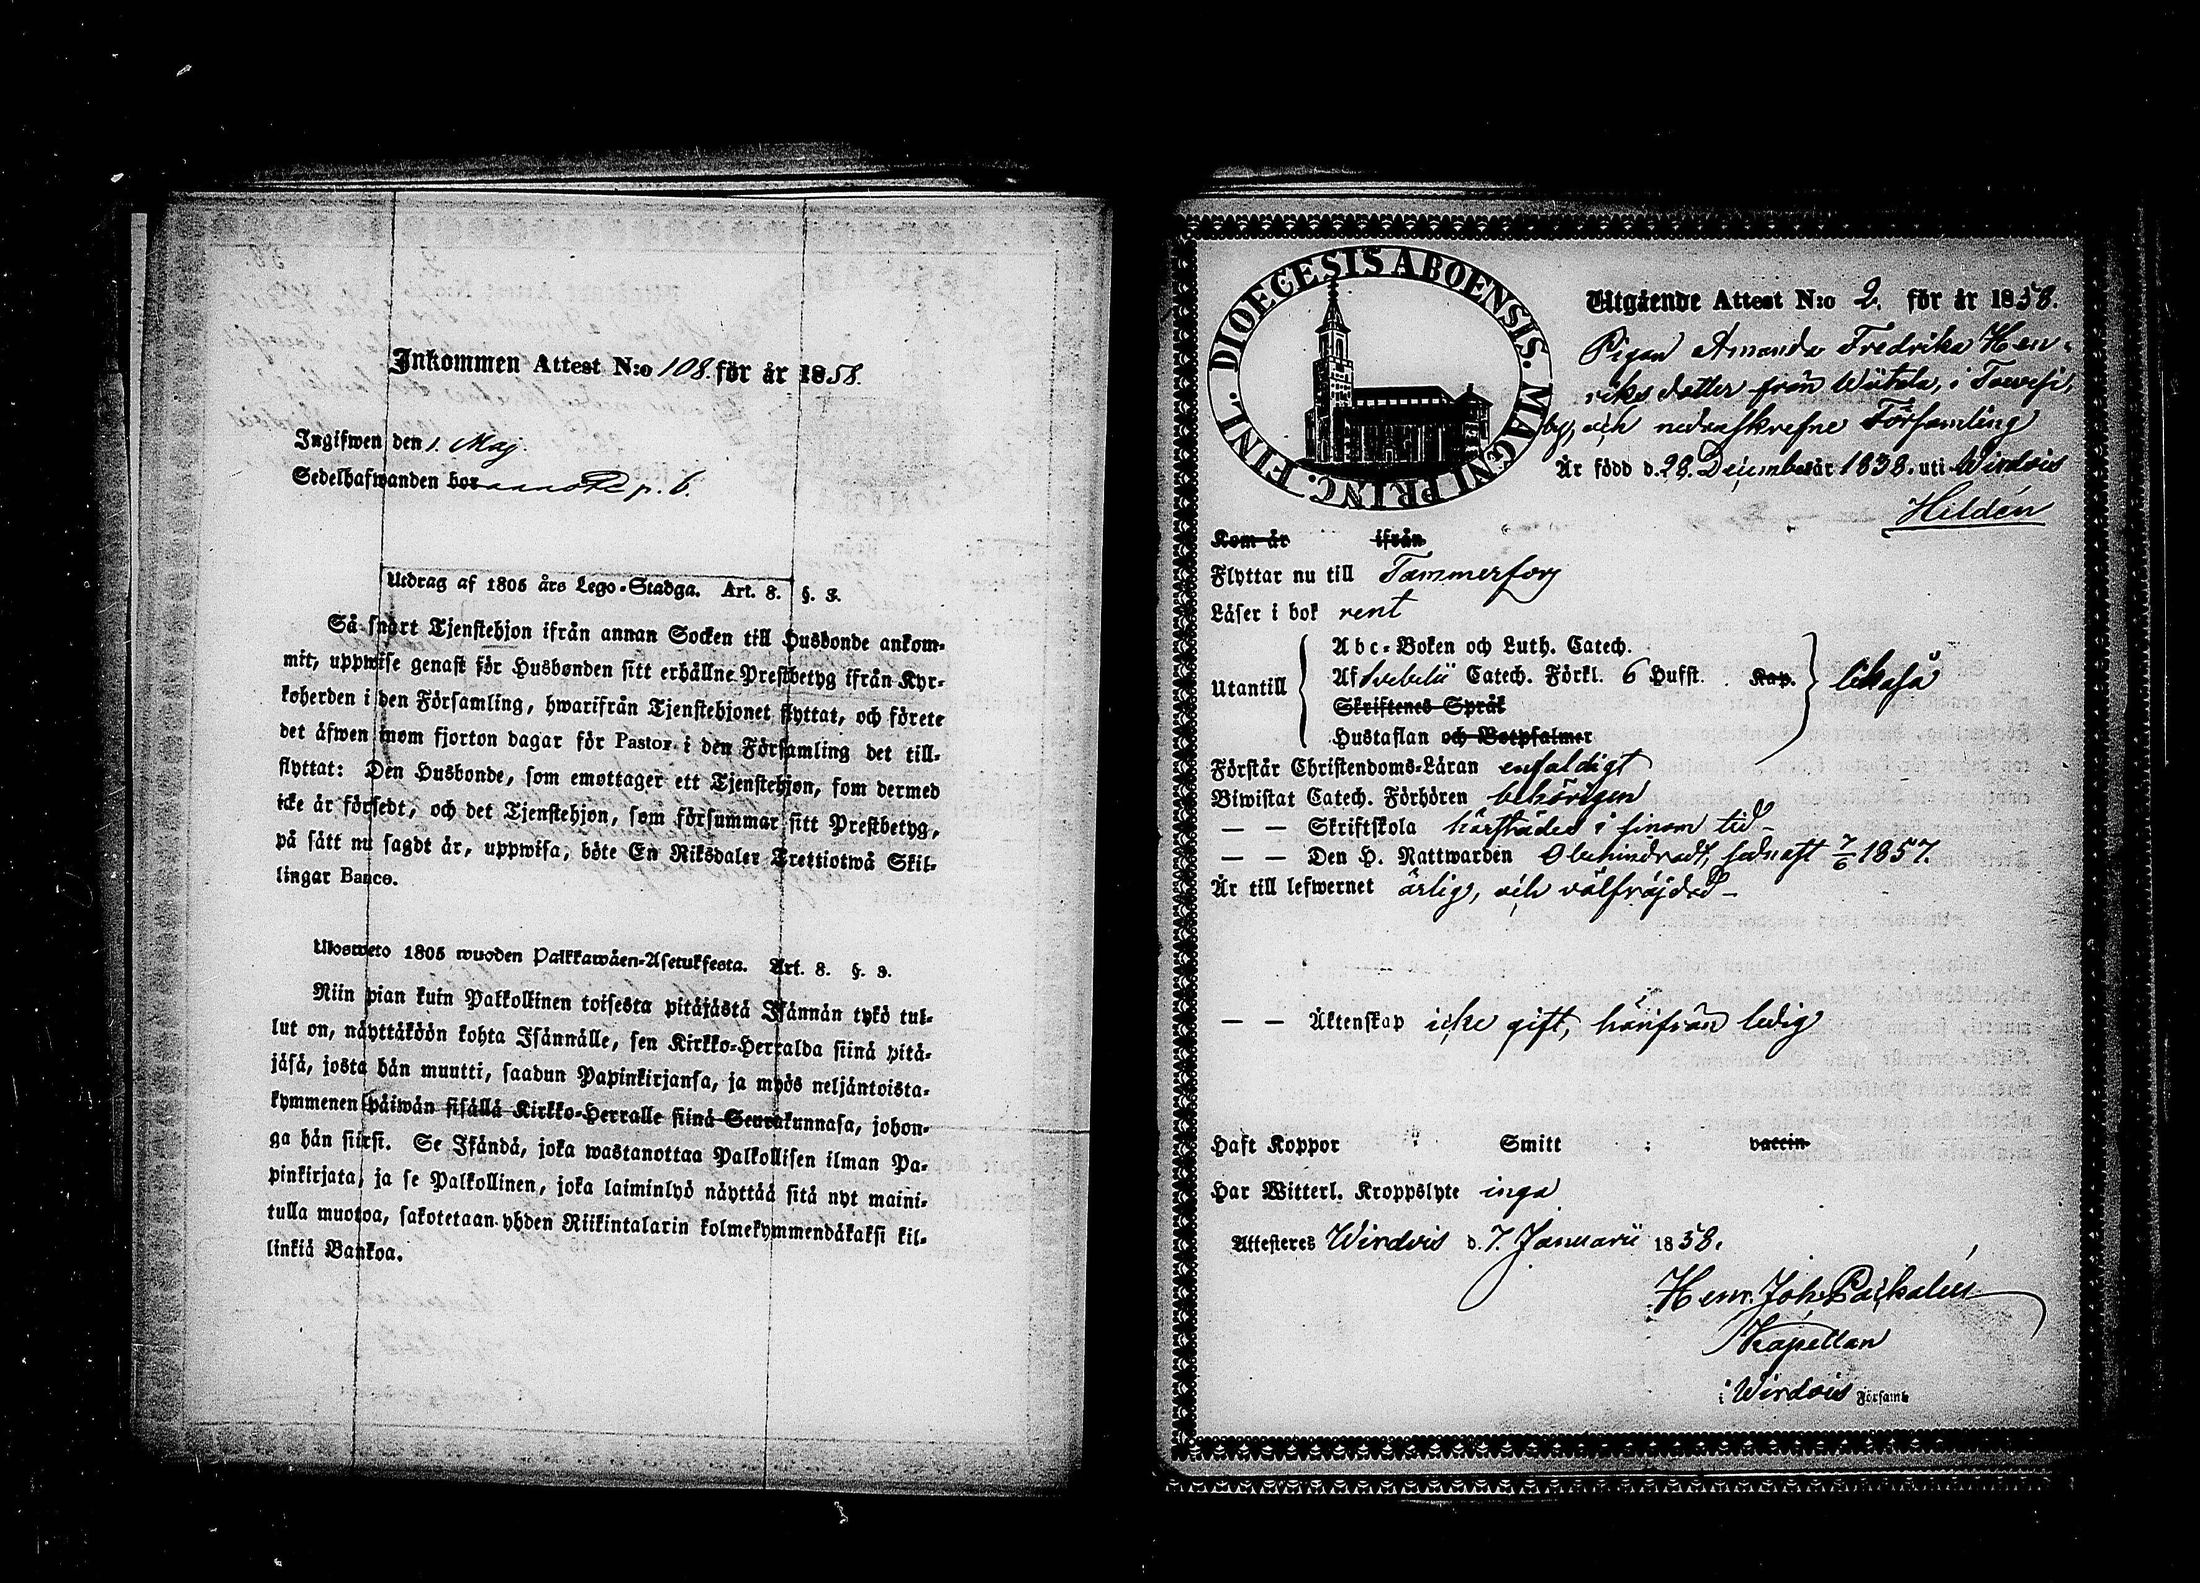 Inkommen Attest N:o 108. för år 1858.
Ingifwen den 1. Maj.
Sedelhafwanden bor p. 6.
Utdrag af 1805 års Lego-Stadga. Art. 8. §. 3.
Så snart Tjenstehjon ifrån annan Socken till Husbonde ankom-
mit, uppwise genast för Husbonden sitt erhållne Prestbetyg ifrån Kyr-
koherden i den Församling, hwarifrån Tjenstehjonet flyttat, och förete
det äfwen inom fjorton dagar för Pastor i den Församling det till-
flyttat: Den Husbonde, som emottager ett Tjenstehjon, som dermed
icke är försedt, och det Tjenstehjon, som försummar sitt Prestbetyg,
på sätt nu sagdt är, uppwisa, böte En Riksdaler Trettiotwå Skil-
lingar Banco.
Ulosweto 1805 wuoden Palkkawäen-Asetuksesta. Art. 8. §. 3.
Niin pian kuin Palkollinen toisesta pitäjästä Isännän tykö tul-
lut on, näyttäköön kohta Isännälle, sen Kirkko-Herralda siinä pitä-
jäsä, josta hän muutti, saadun Papinkirjansa, ja myös neljäntoista-
kymmenen päiwän sisällä Kirkko-Herralle siinä Seurakunnasa, johon-
ga hän siirsi. Se Isändä, joka wastanottaa Palkollisen ilman Pa-
pinkirjata, ja se Palkollinen, joka laiminlyö näyttää sitä nyt maini-
tulla muotoa, sakotetaan yhden Riikintalarin kolmekymmendäkaksi kil-
linkiä Bankoa.
DIOECESIS ABOENSIS. MAGNI PRINC. FINL.
Utgående Attest N:o 2. för år 1858.
Pigan Amanda Fredrika Hen-
riksdotter från Wütala, i Tawesi,
by, och nedanskrefne Församling
Är född d. 28. December år 1838. uti Wirdois
Hildén
Kom år ifrån
Flyttar nu till Tammerfors
Läser i bok rent
Utantill
Abc-Boken och Luth. Catech.
Af Svebelii Catech. Förkl. 6 Hufst. Kap. likaså
Skriftenes Språk
Hustaflan och Botpsalmer
Förstår Christendoms-Läran enfaldigt
Biwistat Catech. Förhören behörigen
— — Skriftskola härstädes i sinom tid
— — Den H. Nattwarden Obehindradt, sednast 7/6 1857.
Är till lefwernet ärlig, och välfrejdad
— — Äktenskap icke gift, härifrån ledig
Haft Koppor " Smitt vaccin
Har Witterl. Kroppslyte inga
Attesteres Wirdois d. 7. Januarii 1858.
Henr. Joh.
Kapellan
i Wirdois Församl.